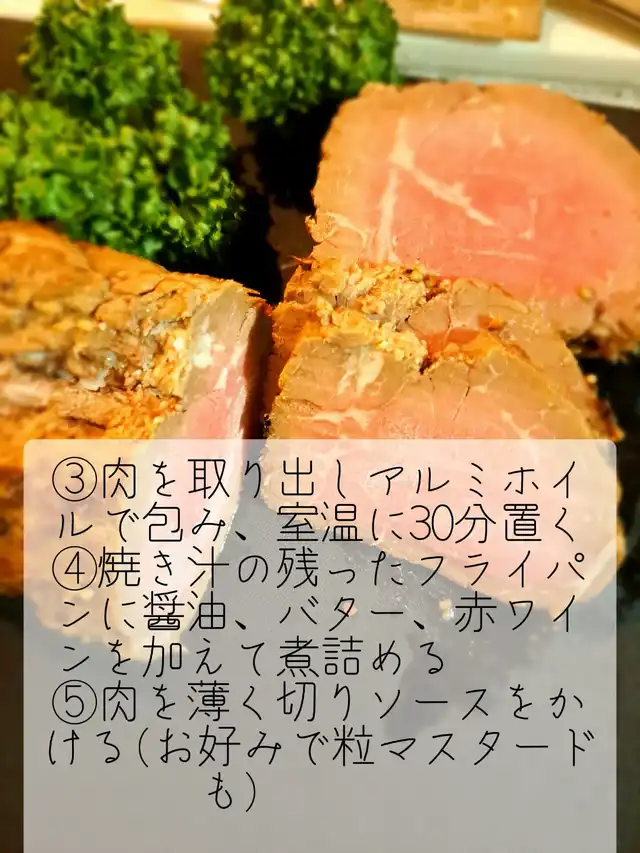 ③肉を取り出しアルミホイ
ルで包み、室温に30分置く
④焼き汁の残ったフライパ
ンに醤油、バター、赤ワイ
ンを加えて煮詰める
⑤肉を薄く切りソースをか
ける(お好みで粒マスタード
も)